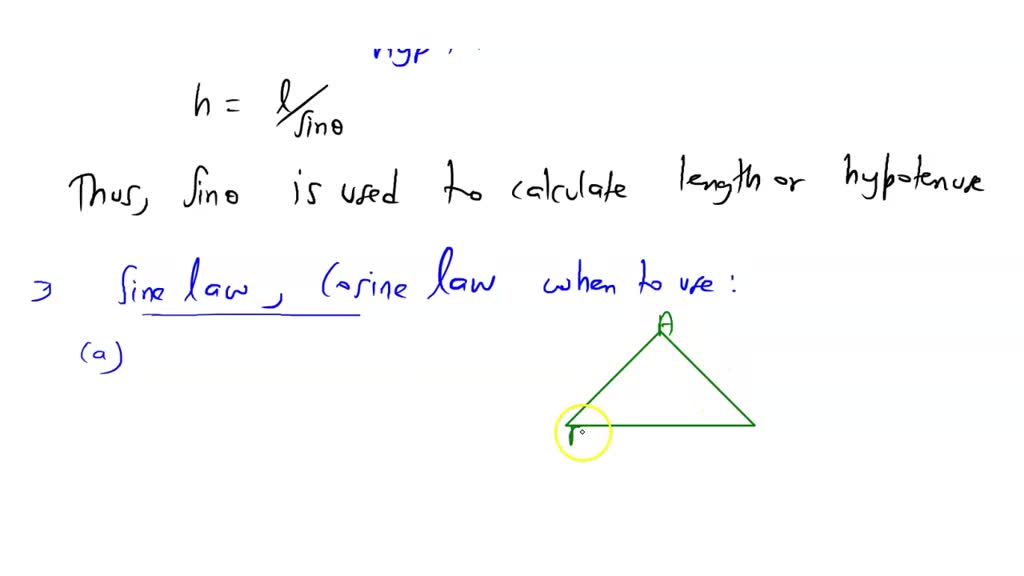 h = l/sinθ
Thus, sinθ is used to calculate length or hypotenuse
⇒ Sine law, Cosine law when to use:
A
(a)